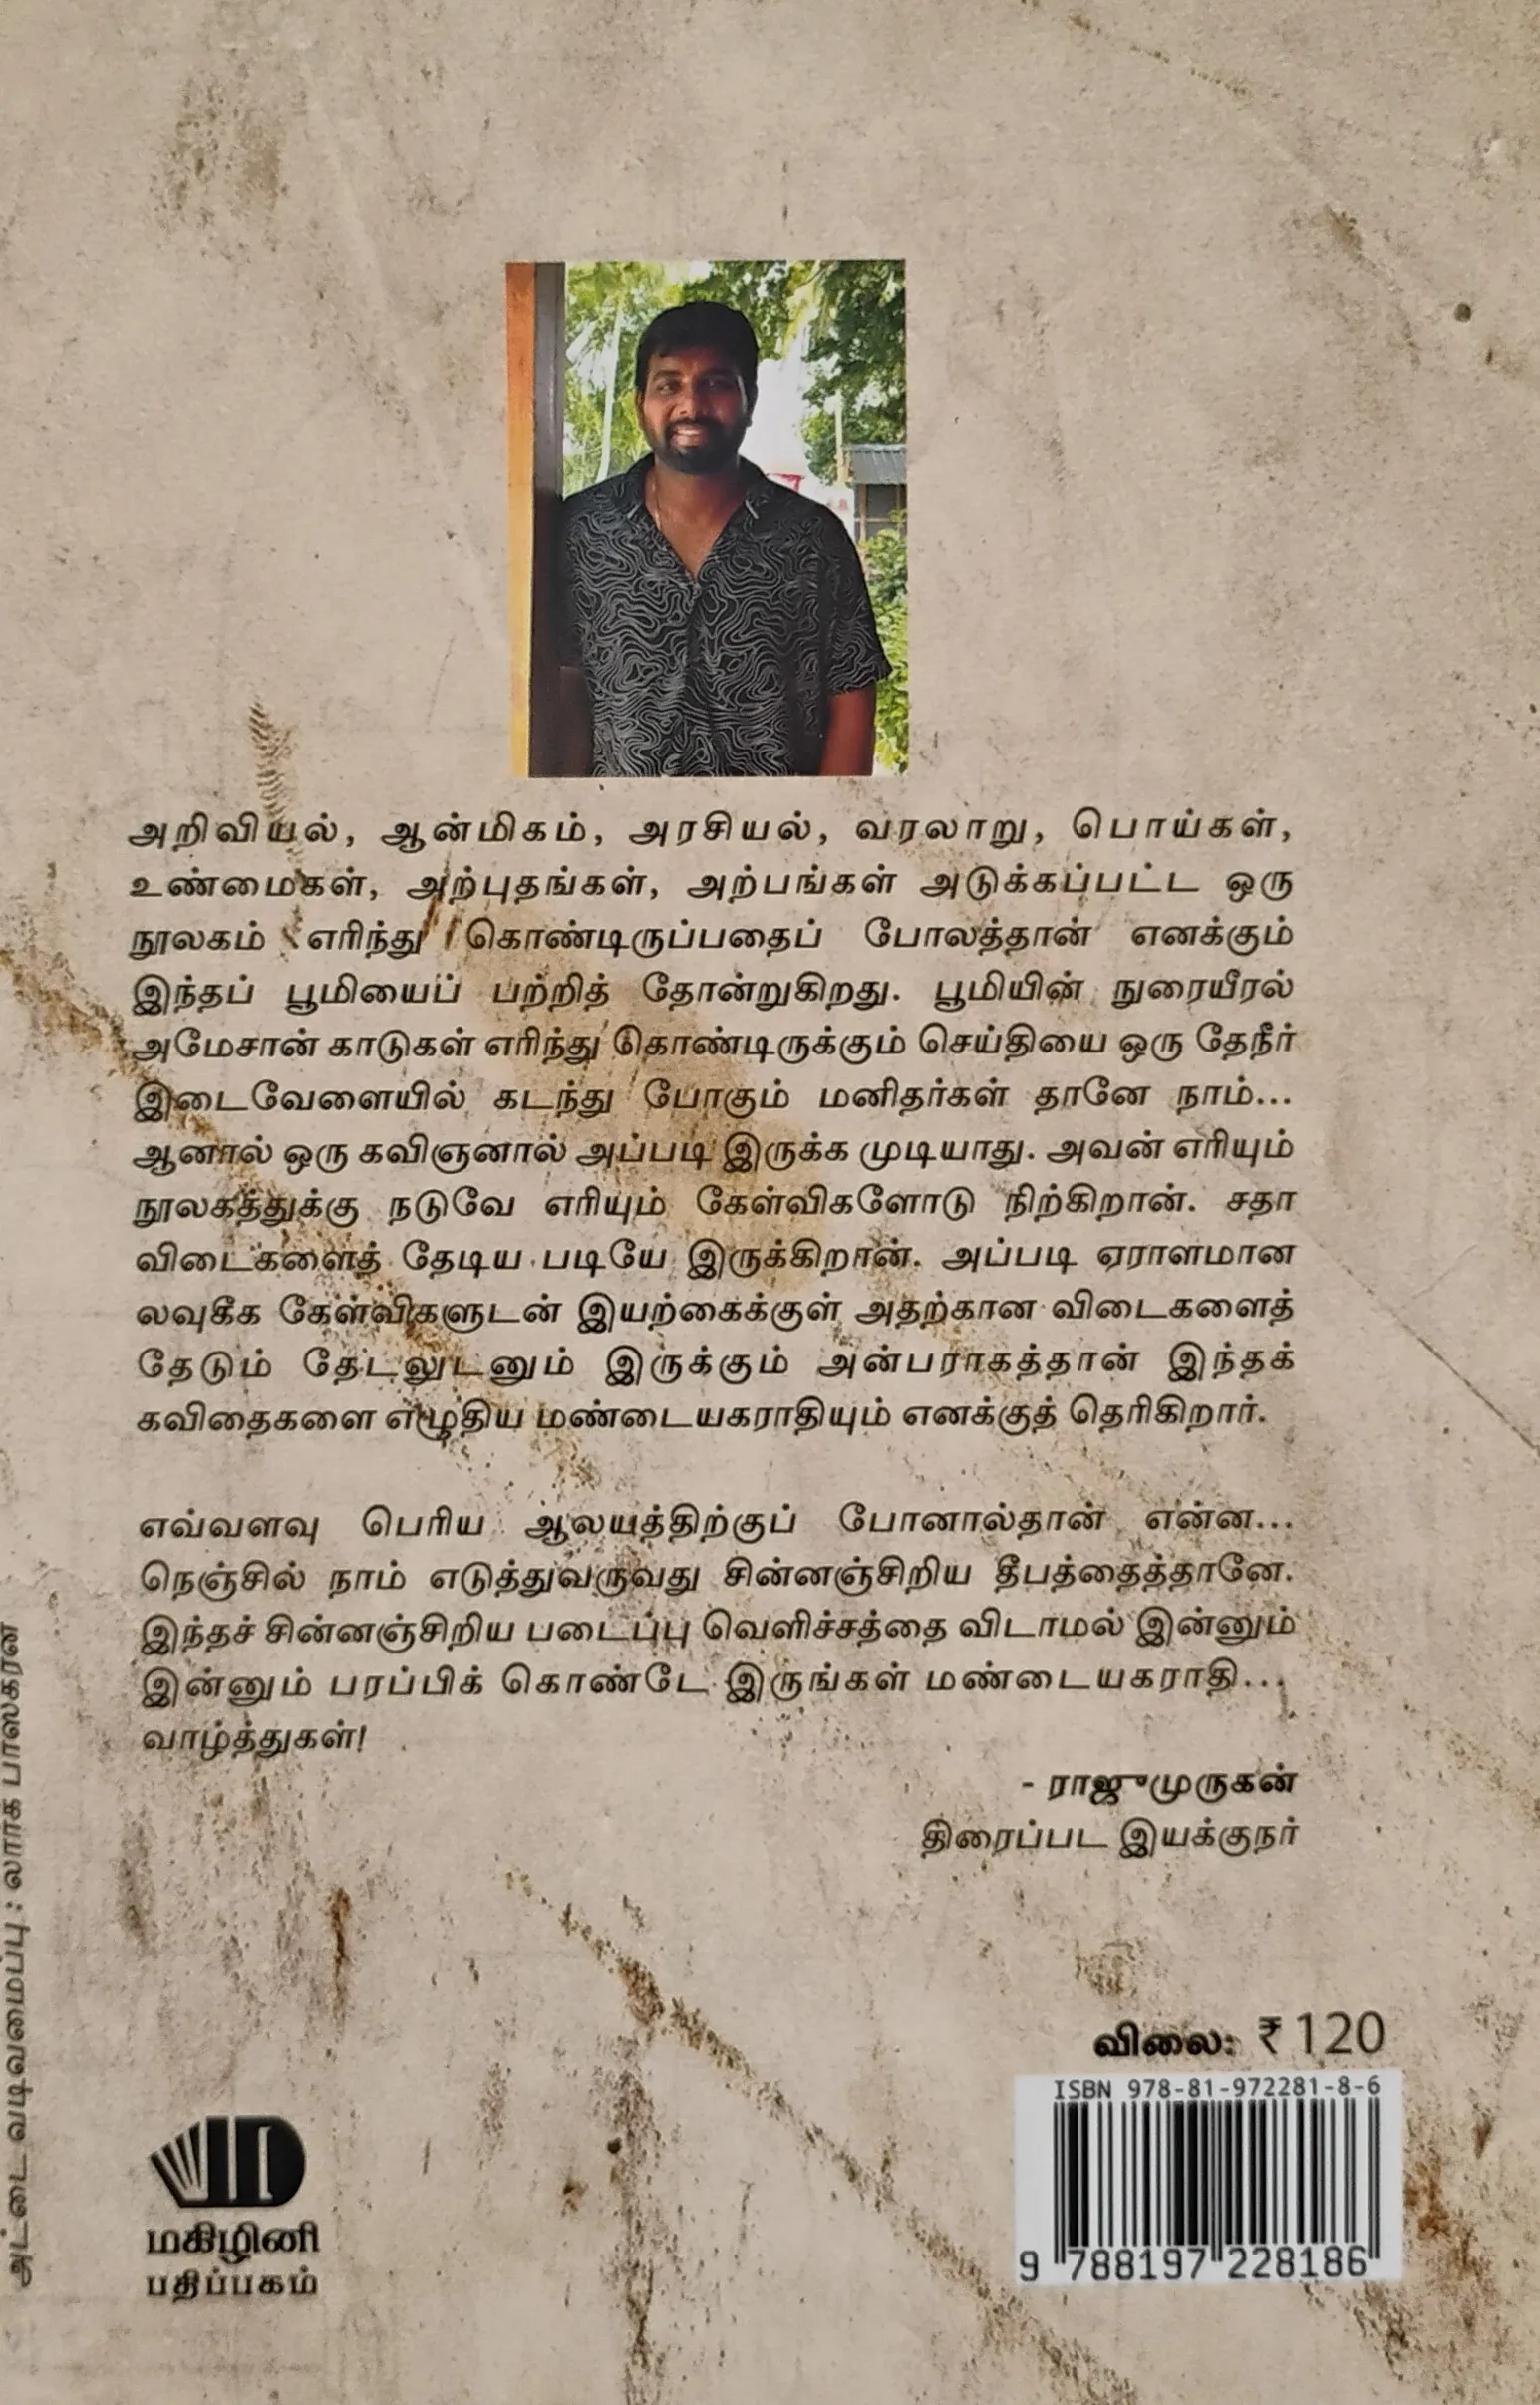 அறிவியல், ஆன்மிகம், அரசியல், வரலாறு, பொய்கள்,
உண்மைகள், அற்புதங்கள், அற்பங்கள் அடுக்கப்பட்ட ஒரு
நூலகம் எரிந்து கொண்டிருப்பதைப் போலத்தான் எனக்கும்
இந்தப் பூமியைப் பற்றித் தோன்றுகிறது. பூமியின் நுரையீரல்
அமேசான் காடுகள் எரிந்து கொண்டிருக்கும் செய்தியை ஒரு தேநீர்
இடைவேளையில் கடந்து போகும் மனிதர்கள் தானே நாம்...
ஆனால் ஒரு கவிஞனால் அப்படி இருக்க முடியாது. அவன் எரியும்
நூலகத்துக்கு நடுவே எரியும் கேள்விகளோடு நிற்கிறான். சதா
விடைகளைத் தேடிய படியே இருக்கிறான். அப்படி ஏராளமான
லவுகீக கேள்விகளுடன் இயற்கைக்குள் அதற்கான விடைகளைத்
தேடும் தேடலுடனும் இருக்கும் அன்பராகத்தான் இந்தக்
கவிதைகளை எழுதிய மண்டையகராதியும் எனக்குத் தெரிகிறார்.
எவ்வளவு பெரிய ஆலயத்திற்குப் போனால்தான் என்ன...
நெஞ்சில் நாம் எடுத்துவருவது சின்னஞ்சிறிய தீபத்தைத்தானே.
இந்தச் சின்னஞ்சிறிய படைப்பு வெளிச்சத்தை விடாமல் இன்னும்
இன்னும் பரப்பிக் கொண்டே இருங்கள் மண்டையகராதி...
வாழ்த்துகள்!
- ராஜுமுருகன்
திரைப்பட இயக்குநர்
அட்டை வடிவமைப்பு : லார்க் பாஸ்கரன்
விலை: ₹ 120
ISBN 978-81-972281-8-6
9 788197 228186
மகிழினி
பதிப்பகம்